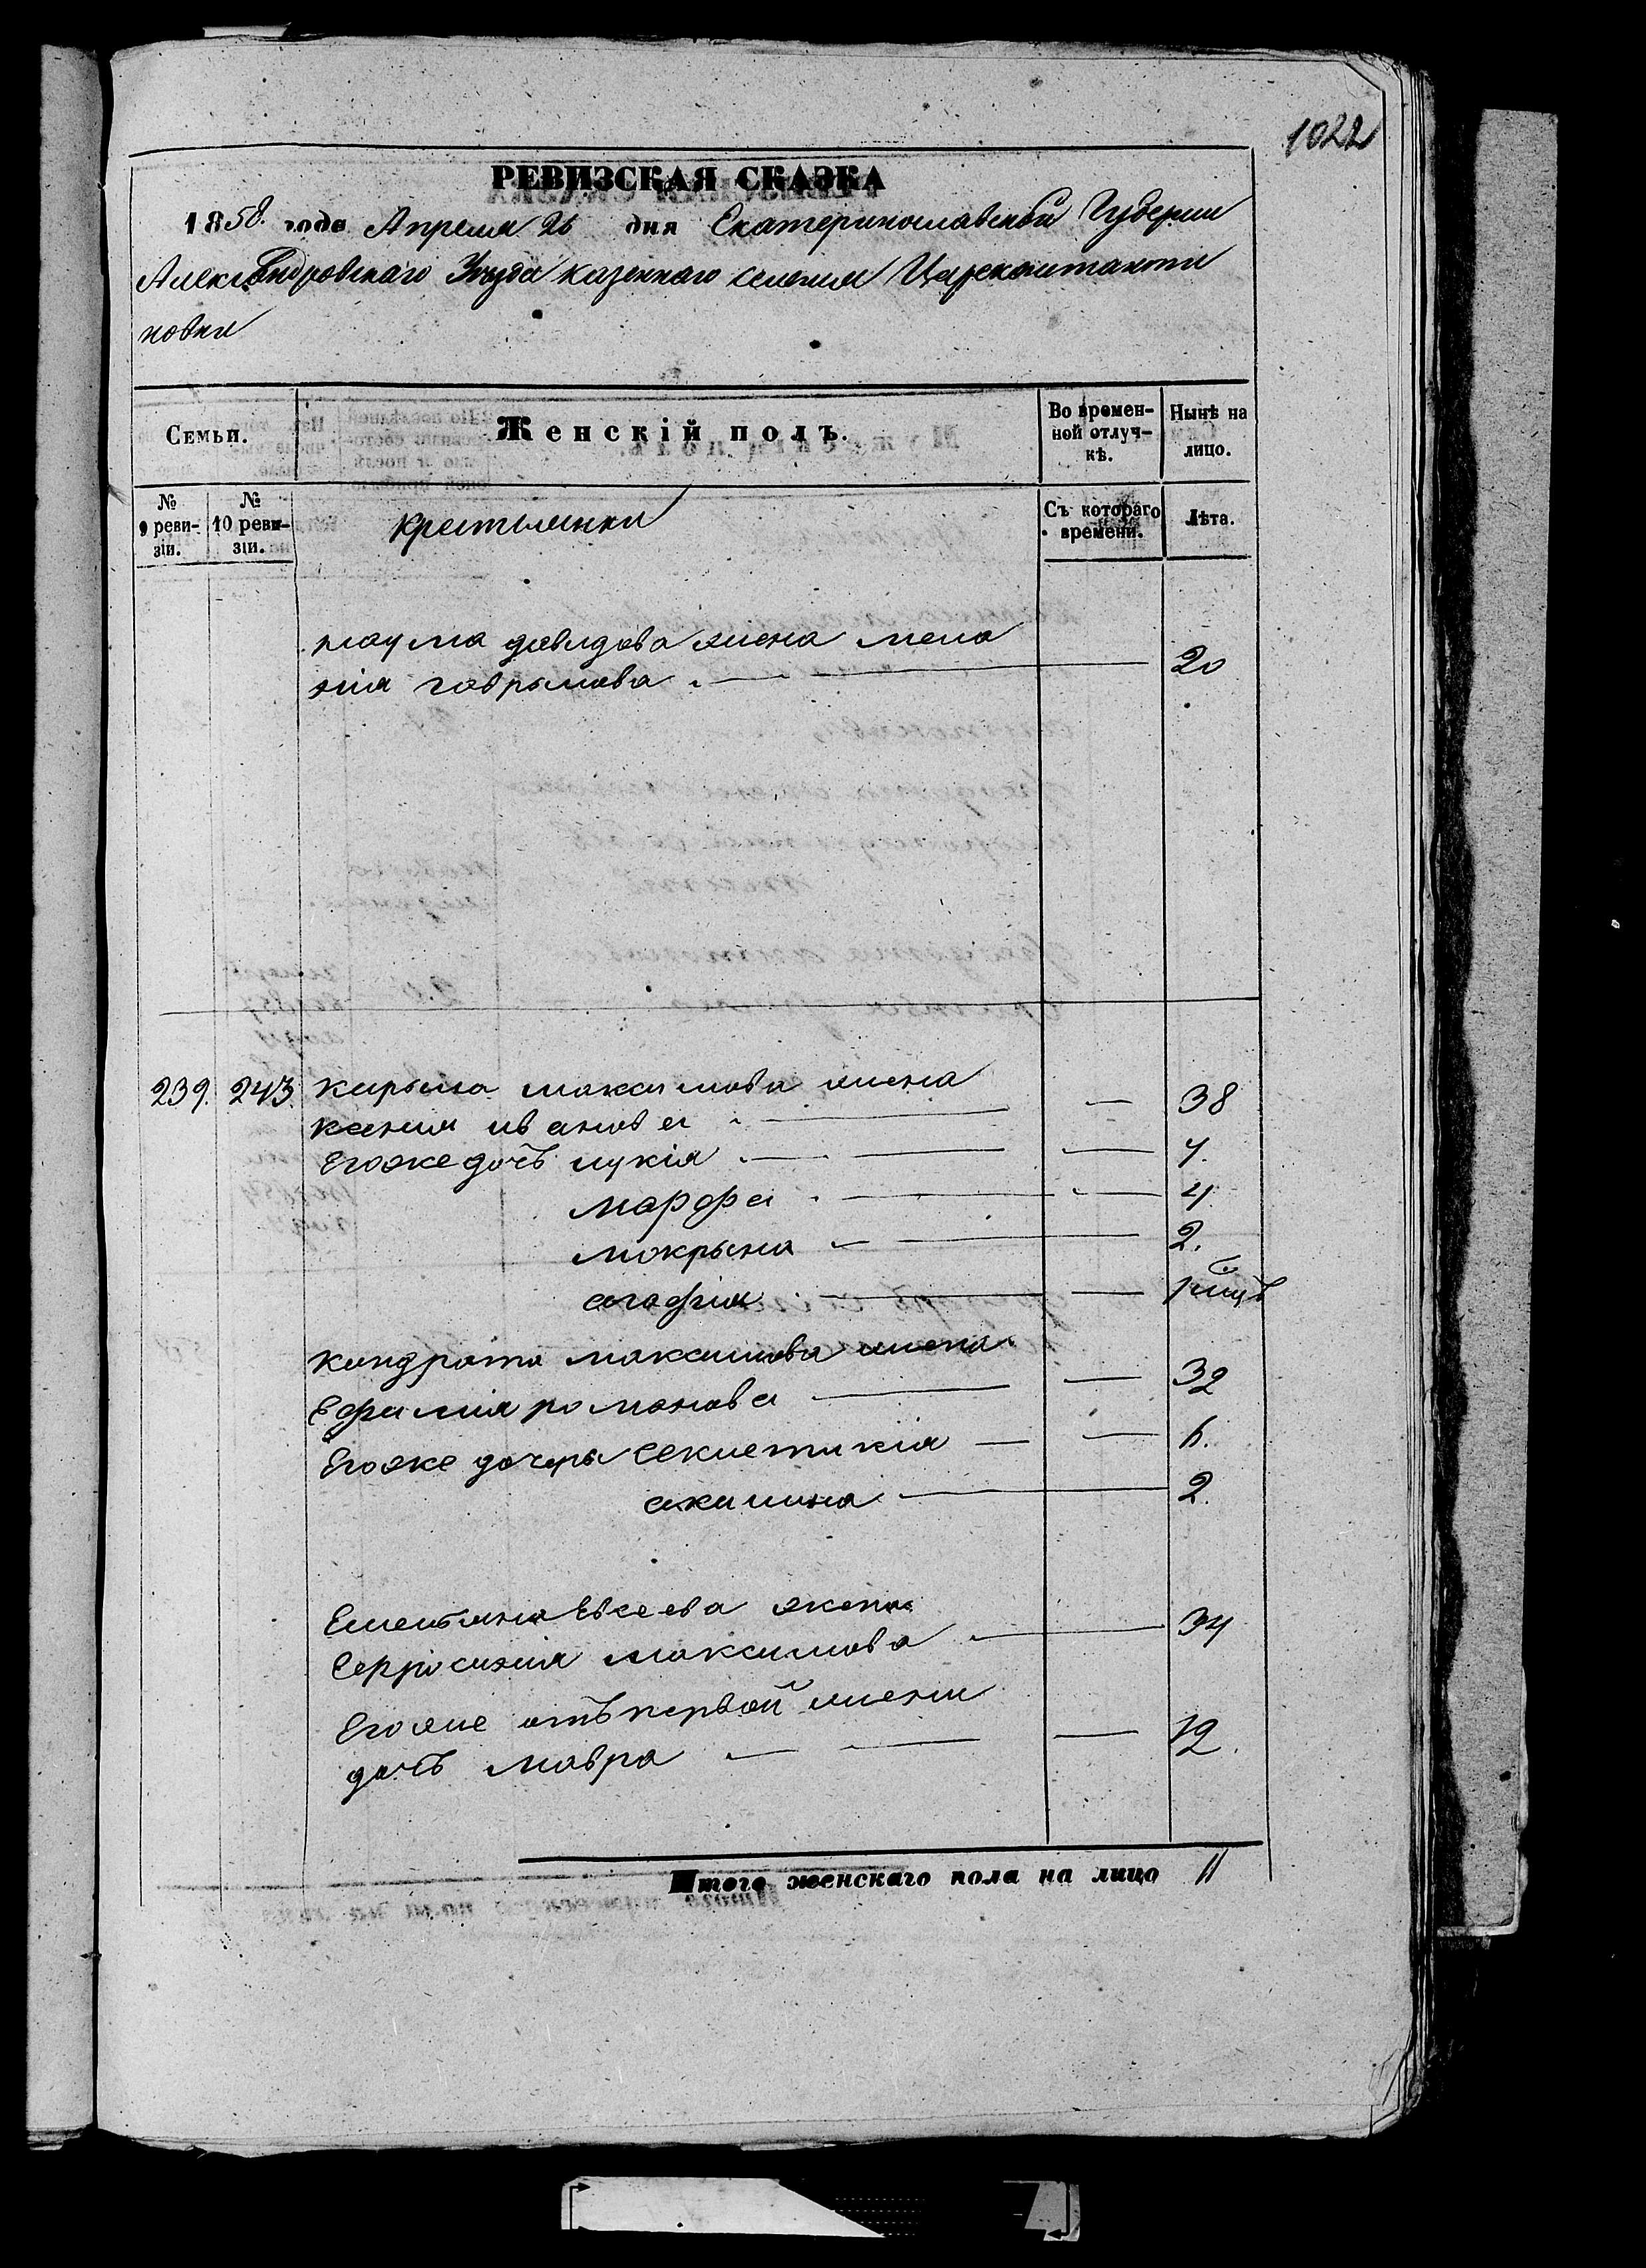 1022
РЕВИЗСКАЯ СКАЗКА
1858 года Апреля 26 дня Екатеринославской Губернии
Александровскаго Уезда казеннаго селения Цареконстанти
новки
Семьи.
Женскій полъ.
Во времен-
ной отлуч-
кѣ.
Нынѣ на
лицо.
№
9 реви-
зіи.
№
10 реви-
зіи.
крестьянки
Съ котораго
времени.
Лѣта.
наума давидова жена мела
нія гаврылова 20
239. 243. кирыла максимова жена
ксения иванова 38
Егоже дочь лукія 7.
марфа 4
мокрына 2.
агафия
кондрата максимова жена
Ефимия романова 32
Егоже дочери Секлетикія 6.
акилина 2.
Емельяна Евсеева жена
Еф росиния максимова 34
Егоже отъ первой жены
дочь мавра 12.
Итого женскаго пола на лицо 11